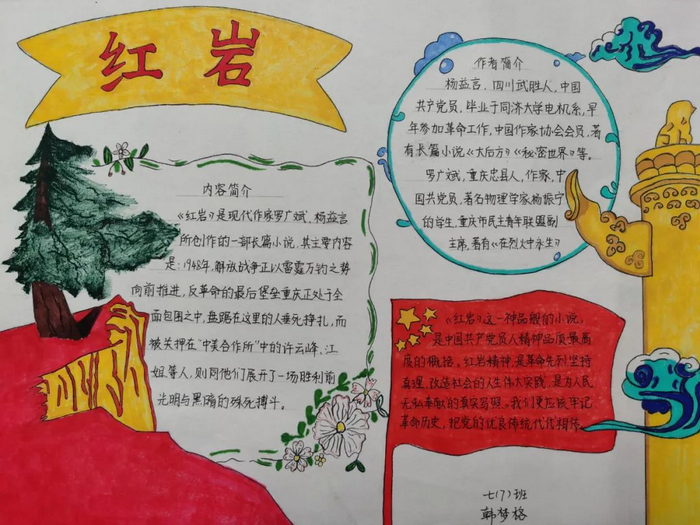 红岩
内容简介
《红岩》是现代作家罗广斌、杨益言
所创作的一部长篇小说，其主要内容
是：1948年，解放战争正以雷霆万钧之势
向前推进，反革命的最后堡垒重庆正处于全
面包围之中，盘踞在这里的人垂死挣扎，而
被关押在“中美合作所”中的许云峰、江
姐等人，则同他们展开了一场胜利前
光明与黑暗的殊死搏斗。
作者简介
杨益言，四川武胜人，中国
共产党员，毕业于同济大学电机系，早
年参加革命工作，中国作家协会会员，著
有长篇小说《大后方》《秘密世界》等。
罗广斌，重庆忠县人，作家，中
国共党员，著名物理学家杨振宁
的学生，重庆市民主青年联盟副
主席，著有《在烈火中永生》
《红岩》这一神品般的小说，
是中国共产党员人精神品质最高
度的概括。红岩精神，是革命先烈坚持
真理、改造社会的人生伟大实践，是为人民
无私奉献的真实写照。我们更应该牢记
革命历史，把党的优良传统代代相传。
七（7）班
韩梦格